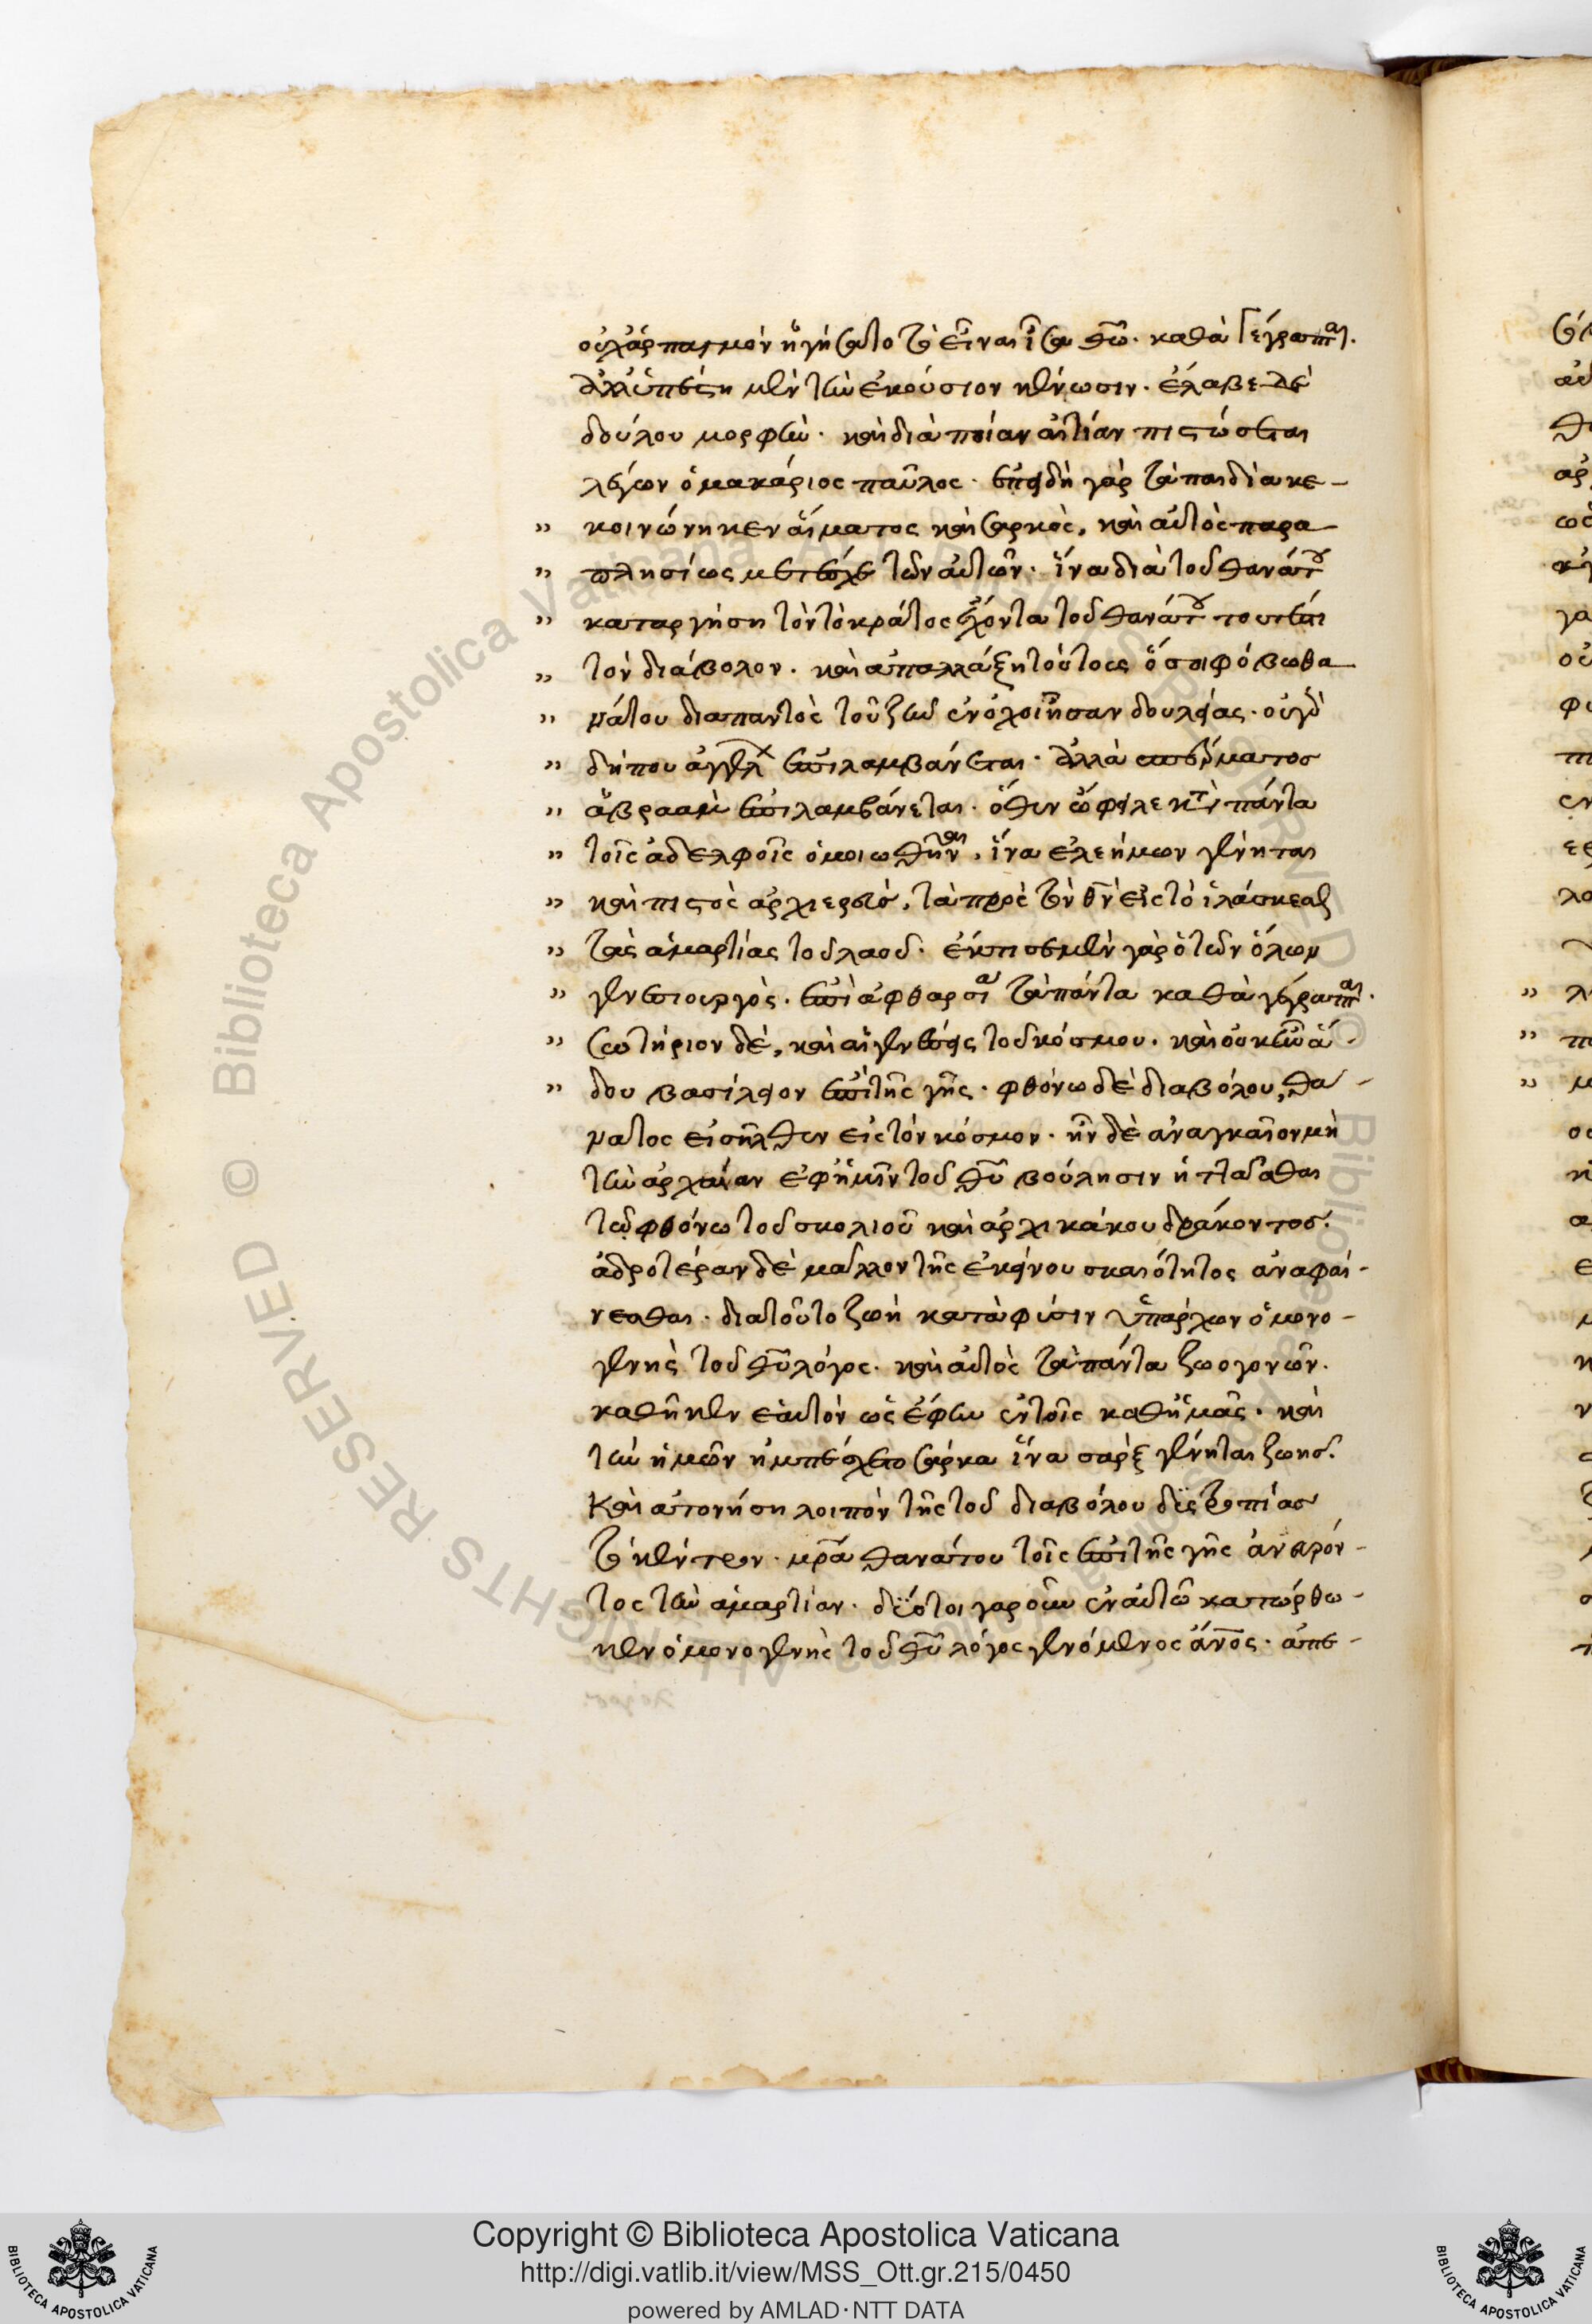 οὐχ ἁρπαγμὸν ἡγήσατο τὸ εἶναι ἶσα θω̅. καθὰ γέγραπται.
ἀλλ' ὑπέστη μὲν τὴν ἑκούσιον κένωσιν. ἔλαβε δὲ
δούλου μορφὴν. καὶ διὰ ποίαν αἰτίαν πιστώσεται
λέγων ὁ μακάριος παῦλος. ἐπειδὴ γὰρ τὰ παιδία κε-
" κοινώνηκεν αἵματος καὶ σαρκὸς, καὶ αὐτὸς παρα-
" πλησίως μετέσχε τῶν αὐτῶν. ἵνα διὰ τοῦ θανάτου
" καταργήση τὸν τὸ κράτος ἔχοντα τοῦ θανάτου τουτέστι
" τὸν διάβολον. καὶ ἀπαλλάξη τούτους ὅσοι φόβω θα-
" νάτου διαπαντὸς τοῦ ζῆν ἔνοχοι ἦσαν δουλείας. οὐ γὰρ
" δήπου ἀγγέλων ἐπιλαμβάνεται. ἀλλὰ σπέρματος
" ἀβραὰμ ἐπιλαμβάνεται. ὅθεν ὤφειλε κατὰ πάντα
" τοῖς ἀδελφοῖς ὁμοιωθῆναι, ἵνα ἐλεήμων γένηται
" καὶ πιστὸς ἀρχιερεὺς, τὰ πρὸς τὸν θν̅ εἰς τὸ ἱλάσκεσθαι
" τὰς ἁμαρτίας τοῦ λαοῦ. ἔκτισε μὲν γὰρ ὁ τῶν ὅλων
" γενεσιουργὸς. ἐπὶ ἀφθαρσία τὰ πάντα καθὰ γέγραπται.
" σωτήριον δὲ, καὶ αἱ γενέσεις τοῦ κόσμου. καὶ οὐκ ἦν ἅ-
" δου βασίλειον ἐπὶ τῆς γῆς. φθόνω δὲ διαβόλου, θά-
νατος εἰσῆλθεν εἰς τὸν κόσμον. ἦν δὲ ἀναγκαῖον μὴ
τὴν ἀρχαίαν ἐφ' ἡμῖν τοῦ θυ̅ βούλησιν ἡττᾶσθαι
τῶ φθόνω τοῦ σκολιοῦ καὶ ἀρχικάκου δράκοντος.
ἁδροτέραν δὲ μᾶλλον τῆς ἐκείνου σκαιότητος ἀναφαί-
νεσθαι. διατοῦτο ζωὴ κατὰ φύσιν ὑπάρχων ὁ μονο-
γενὴς τοῦ θυ̅ λόγος. καὶ αὐτὸς τὰ πάντα ζωογονῶν.
καθῆκεν ἑαυτὸν ὡς ἔφην ἐν τοῖς καθ' ἡμᾶς. καὶ
τὴν ἡμῶν ἠμπέσχετο σάρκα ἵνα σὰρξ γένηται ζωῆς.
καὶ ἀτονήση λοιπὸν τῆς τοῦ διαβόλου δυστροπίας
τὸ κέντρον. μρ̅α θανάτου τοῖς ἐπὶ τῆς γῆς ἀνευρόν-
τος τὴν ἁμαρτίαν. δύο τοι γὰρ οὖν ἐν αὐτῶ κατώρθω-
κεν ὁ μονογενὴς τοῦ θυ̅ λόγος γενόμενος ἄνο̅ς. ἀπε-